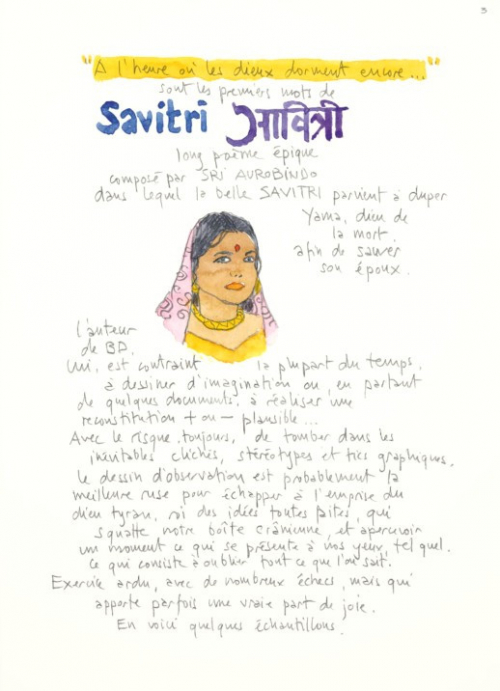 3
"À l'heure où les dieux dorment encore..."
sont les premiers mots de
Savitri सावित्री
long poème épique
composé par SRI AUROBINDO
dans lequel la belle SAVITRI parvient à duper
Yama, dieu de
la mort,
afin de sauver
son époux.
l'auteur
de BD,
lui, est contraint la plupart du temps,
à dessiner d'imagination ou, en partant
de quelques documents, à réaliser une
reconstitution + ou - plausible...
Avec le risque, toujours, de tomber dans les
inévitables clichés, stéréotypes et tics graphiques,
le dessin d'observation est probablement la
meilleure ruse pour échapper à l'emprise du
dieu tyran, roi des idées toutes faites, qui
squatte notre boîte crânienne, et apercevoir
un moment ce qui se présente à nos yeux, tel quel.
Ce qui consiste à oublier tout ce que l'on sait.
Exercice ardu, avec de nombreux échecs, mais qui
apporte parfois une vraie part de joie.
En voici quelques échantillons.